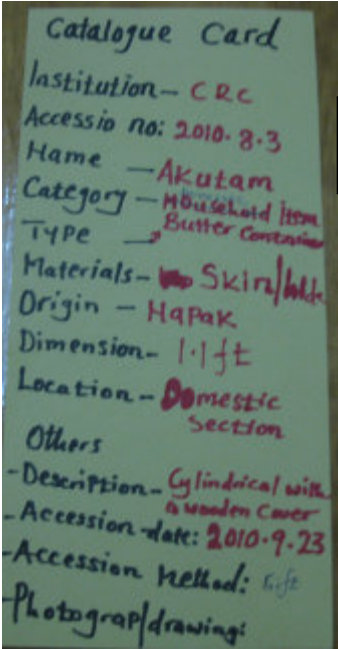 Catalogue Card
Institution - CRC
Accessio no: 2010.8.3
Name - Akutam
Category - Household Item
Type → Butter Container
Materials - Skin/hide
Origin - Hapak
Dimension - 1.1 ft
Location - Domestic
Section
Others
- Description - Cylindrical with
a wooden cover
- Accession date: 2010.9.23
- Accession Method: Gift
- Photograp/drawing: